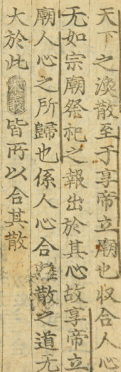 天下之渙散至于享帝立廟也収合人心
无如宗廟祭祀之報出於其心故享帝立
廟人心之所歸也係人心合離散之道无
大於此 皆所以合其散